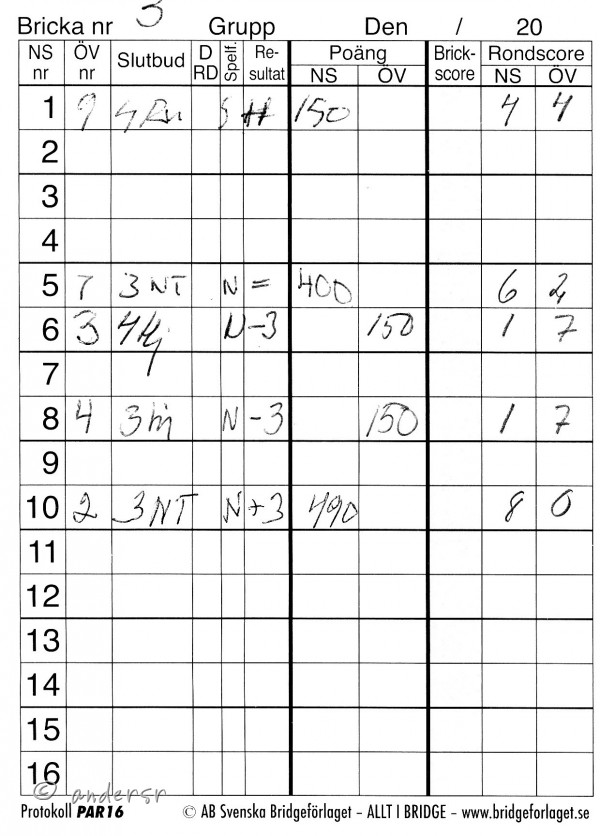 Bricka nr 3 Grupp Den / 20
NS nr ÖV nr Slutbud D RD Spelf. Re-sultat Poäng NS ÖV Brick-score Rondscore NS ÖV
1 9 S 150 4 4
2
3
4
5 7 3 NT N = 400 6 2
6 3 4 Hj N -3 150 1 7
7
8 4 3 hj N -3 150 1 7
9
10 2 3 NT N +3 490 8 0
11
12
13
14
15
16
© andersr
Protokoll PAR16 © AB Svenska Bridgeförlaget – ALLT I BRIDGE – www.bridgeforlaget.se